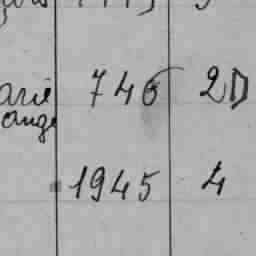 arie 746 2D
ange
1945 4